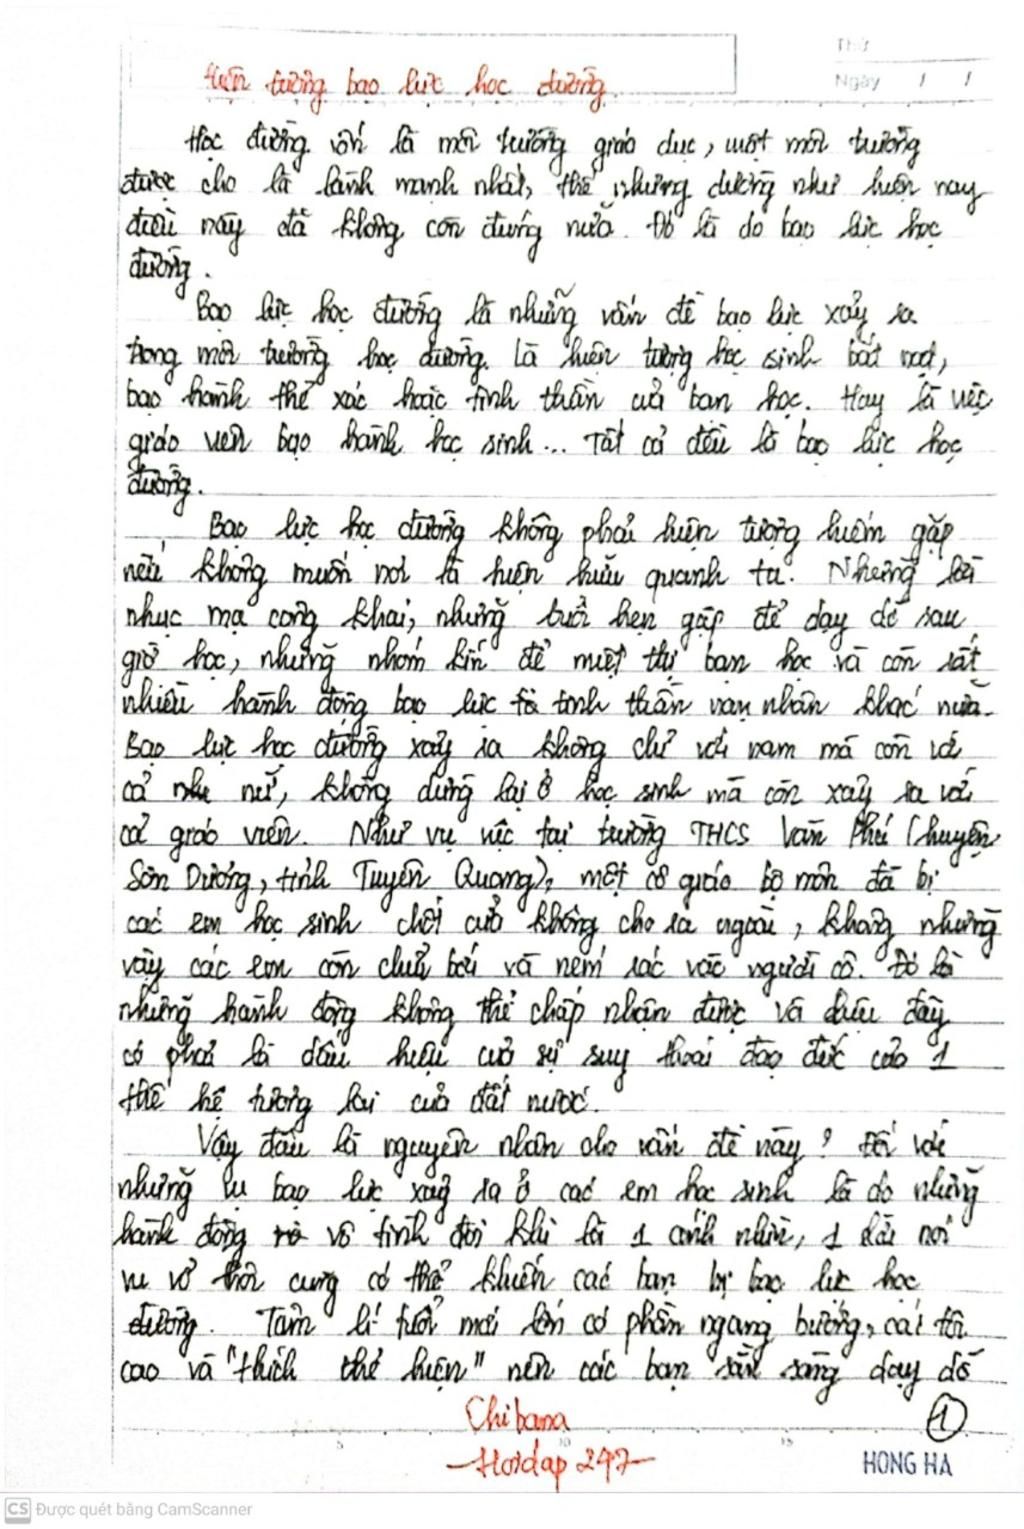 Thứ
Ngày / /
Hiện tượng bạo lực học đường.
Học đường vốn là môi trường giáo dục, một môi trường
được cho là lành mạnh nhất, thế nhưng dường như hiện nay
điều này đã không còn đúng nữa. Đó là do bạo lực học
đường.
Bạo lực học đường là những vấn đề bạo lực xảy ra
trong môi trường học đường. Là hiện tượng học sinh bắt nạt,
bạo hành thể xác hoặc tinh thần của bạn học. Hay là việc
giáo viên bạo hành học sinh... Tất cả đều là bạo lực học
đường.
Bạo lực học đường không phải hiện tượng hiếm gặp
nếu không muốn nói là hiện hữu quanh ta. Những lời
nhục mạ công khai, những buổi hẹn gặp để dạy dỗ sau
giờ học, những nhóm kín để miệt thị bạn học và còn rất
nhiều hành động bạo lực tinh thần nạn nhân khác nữa.
Bạo lực học đường xảy ra không chỉ với nam mà còn với
cả nữ, không dừng lại ở học sinh mà còn xảy ra với
cả giáo viên. Như vụ việc tại trường THCS Văn Phú (huyện
Sơn Dương, tỉnh Tuyên Quang), một cô giáo bộ môn đã bị
các em học sinh chốt cửa không cho ra ngoài, không những
vậy các em còn chửi bới và ném rác vào người cô. Đó là
những hành động không thể chấp nhận được và dấu đây
có phải là dấu hiệu của sự suy thoái đạo đức của 1
thế hệ tương lai của đất nước.
Vậy đâu là nguyên nhân cho vấn đề này? Đối với
những vụ bạo lực xảy ra ở các em học sinh là do những
hành động vô tình đôi khi là 1 ánh nhìn, 1 lời nói
vu vơ thôi cũng có thể khiến các bạn bị bạo lực học
đường. Tâm lí tuổi mới lớn có phần ngang bướng, cái tôi
cao và "thích thể hiện" nên các bạn sẵn sàng dạy dỗ
Chibana
1
-Hoidap 247-
5 10 15
HONG HA
CS Được quét bằng CamScanner